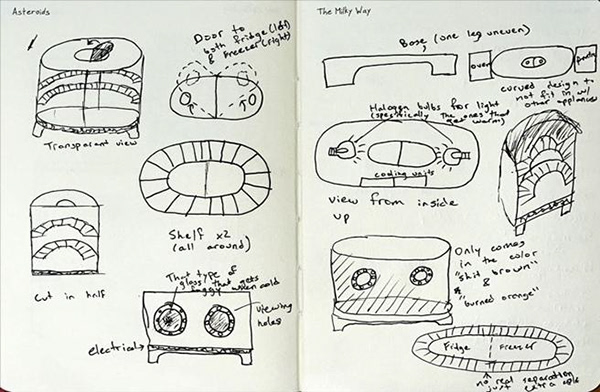 Asteroids
Door to
both fridge (left)
& Freezer (right)
Transparent view
Shelf x2
(all around)
Cut in half
That type of
glass that gets
foggy when cold
Viewing
holes
electrical
The Milky Way
Base (one leg uneven)
oven
curved design to
not fit in w/
other appliances
Halogen bulbs for light
(specifically the ones that
get warm)
cooling units
view from inside
up
Only comes
in the color
"shit brown"
&
"burned orange"
Fridge
Freezer
no real separation
just extra